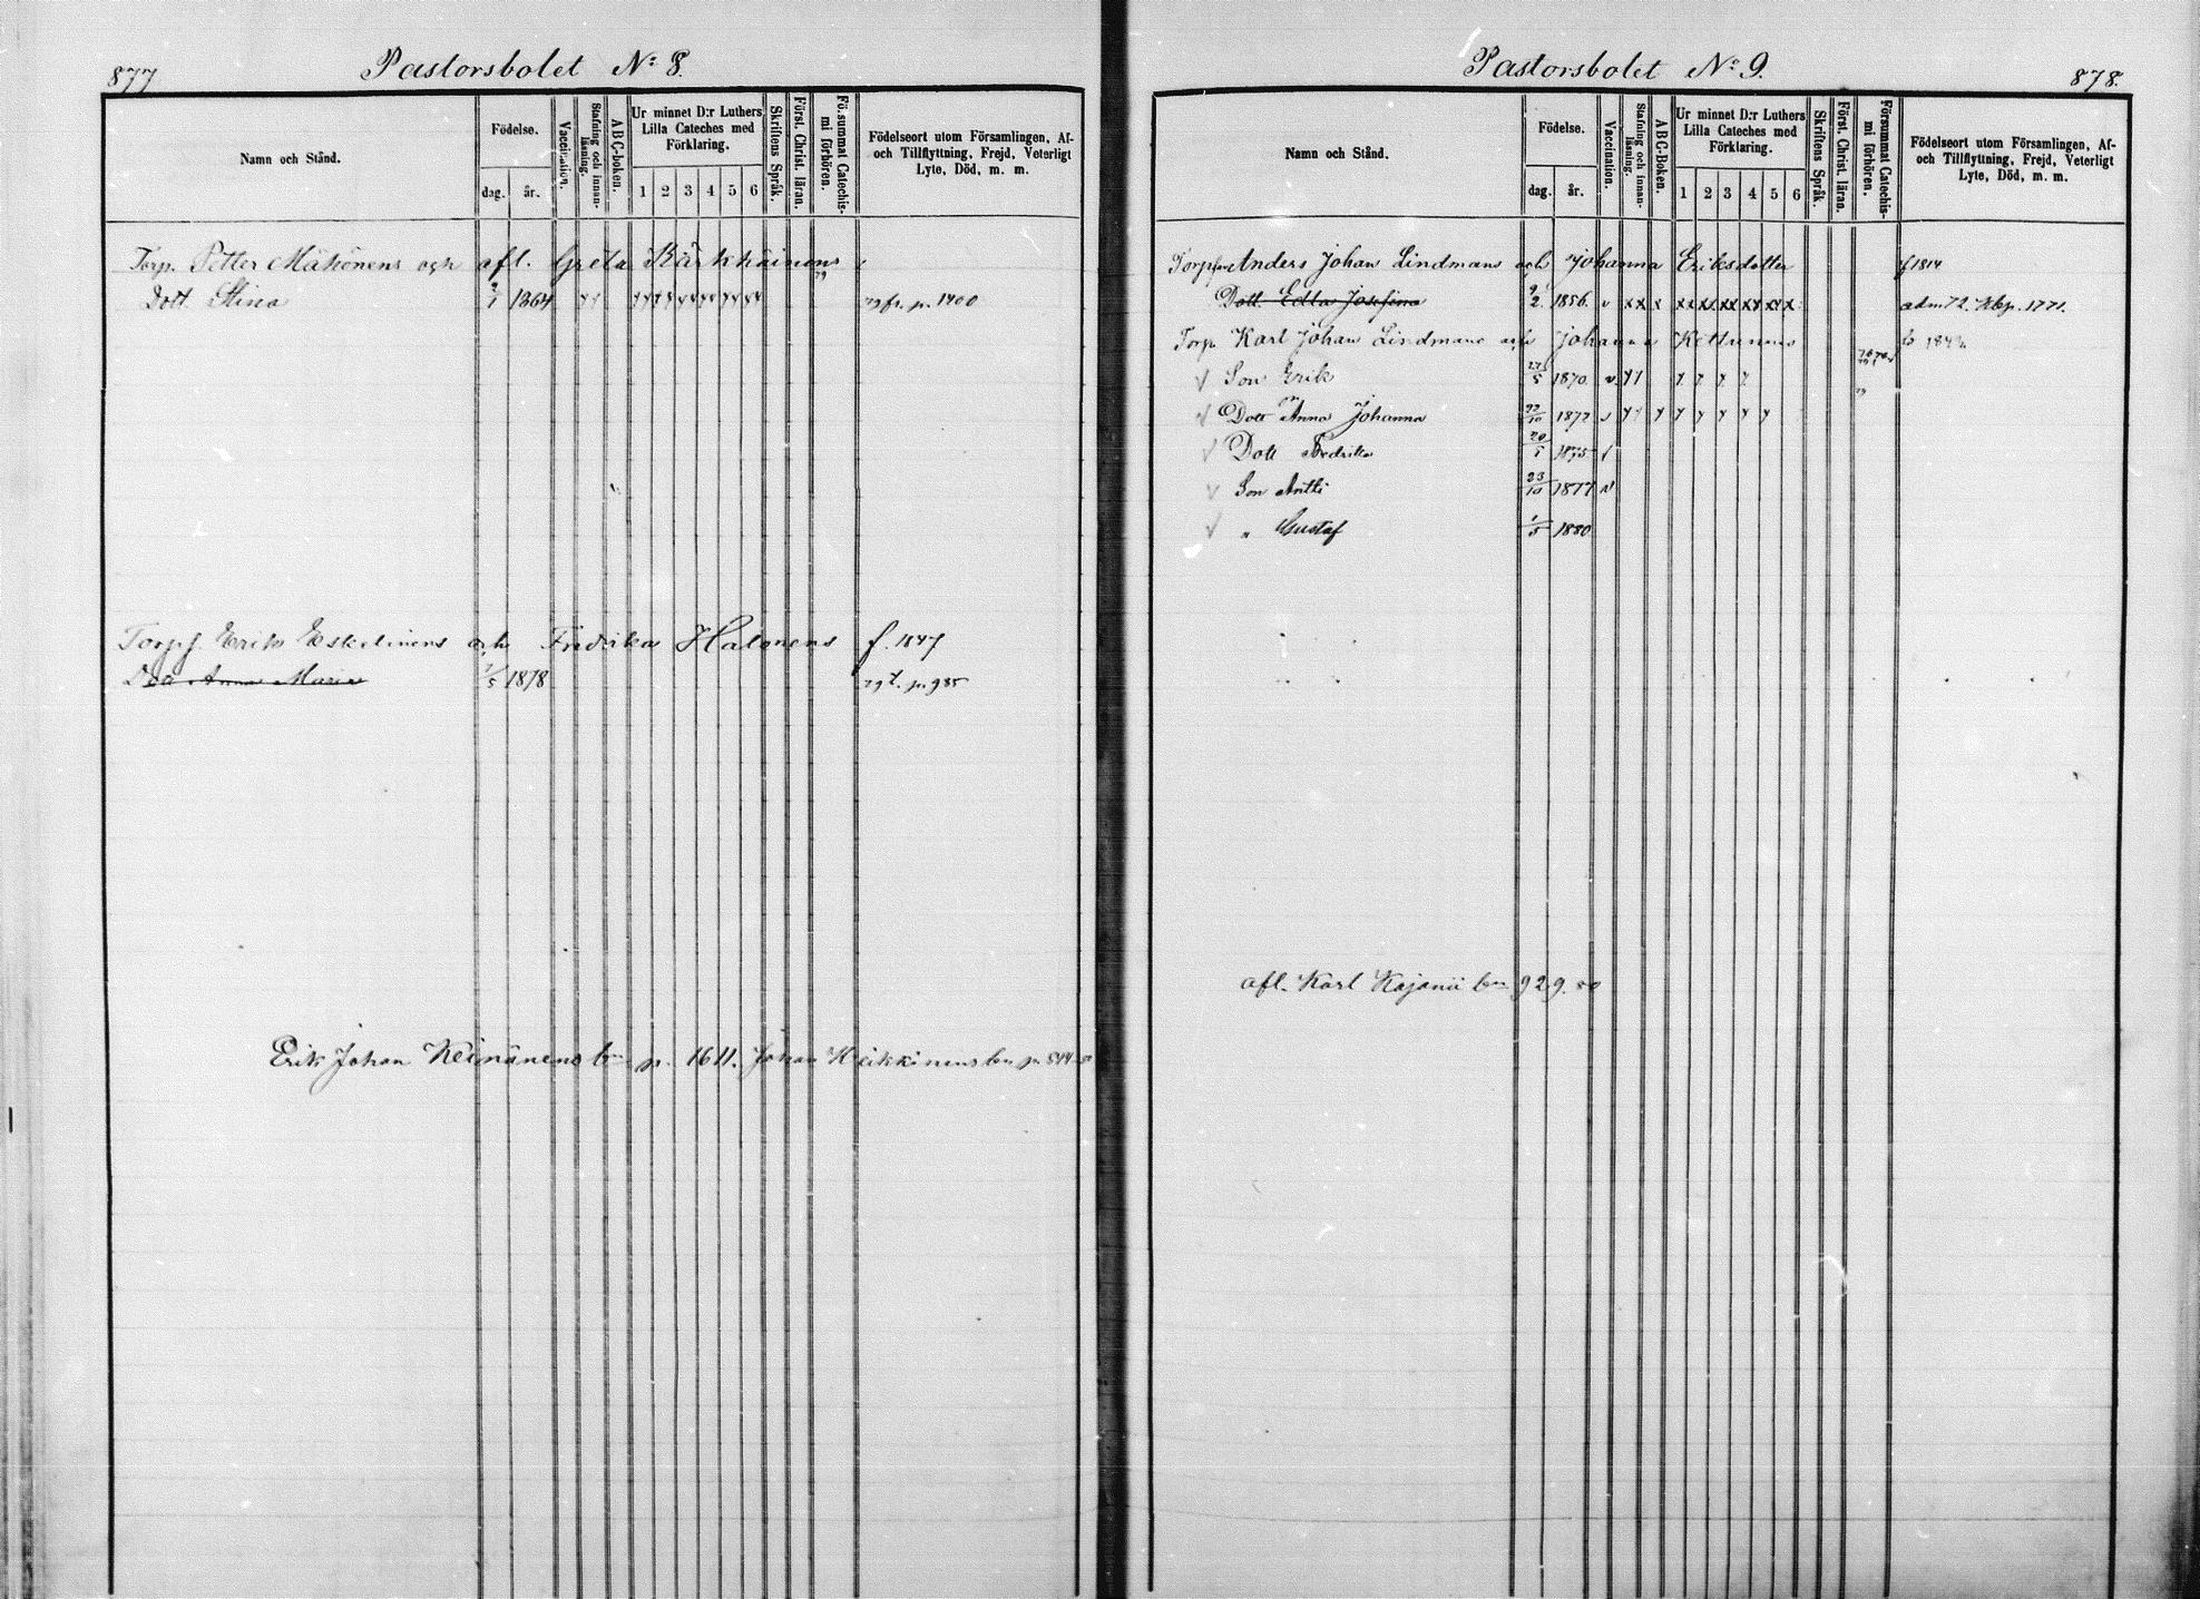 877
Pastorsbolet No 8.
Namn och Stånd.
Födelse.
dag.
år.
Vaccination.
Stafning och innanläsning.
ABC-boken.
Ur minnet D:r Luthers Lilla Cateches med Förklaring.
1 2 3 4 5 6
Skriftens Språk.
Först. Christ. läran.
Försummat Catechismi förhören.
Födelseort utom Församlingen, Af- och Tillflyttning, Frejd, Veterligt Lyte, Död, m. m.
Torp. Petter Mähönens och afl. Greta Kärkkäinens
79
Dott. Stina 1864 79 fr. p. 1400
Torpf. Erik Eskelinens och Fredrika Halonens f. 1847
Anna Maria 7/5 1878 79 t. p. 985
Erik Johan Keinänens bn p. 1611. Johan Heikkinens bn p.
Pastorsbolet No 9.
878.
Namn och Stånd.
Födelse.
dag.
år.
Vaccination.
Stafning och innanläsning.
ABC-Boken.
Ur minnet D:r Luthers Lilla Cateches med Förklaring.
1 2 3 4 5 6
Skriftens Språk.
Först. Christ. läran.
Försummat Catechismi förhören.
Födelseort utom Församlingen, Af- och Tillflyttning, Frejd, Veterligt Lyte, Död, m. m.
Anders Johan Lindmans och Johanna Eriksdotter f 1814
Dott. Edla Josefina 9/2 1856. v x x x x x x x x x x x x x x x adm 72. Kbp. 1771.
Torp. Karl Johan Lindmans och Johanna Kettunens
Son Erik 5 1870 v
Dott Anna Johanna 22/10 1872
Dott Fredrika 20 1875
Son Antti 23/10 1877 v
" Gustaf 1/5 1880
afl. Karl Kajanii bn 929.80